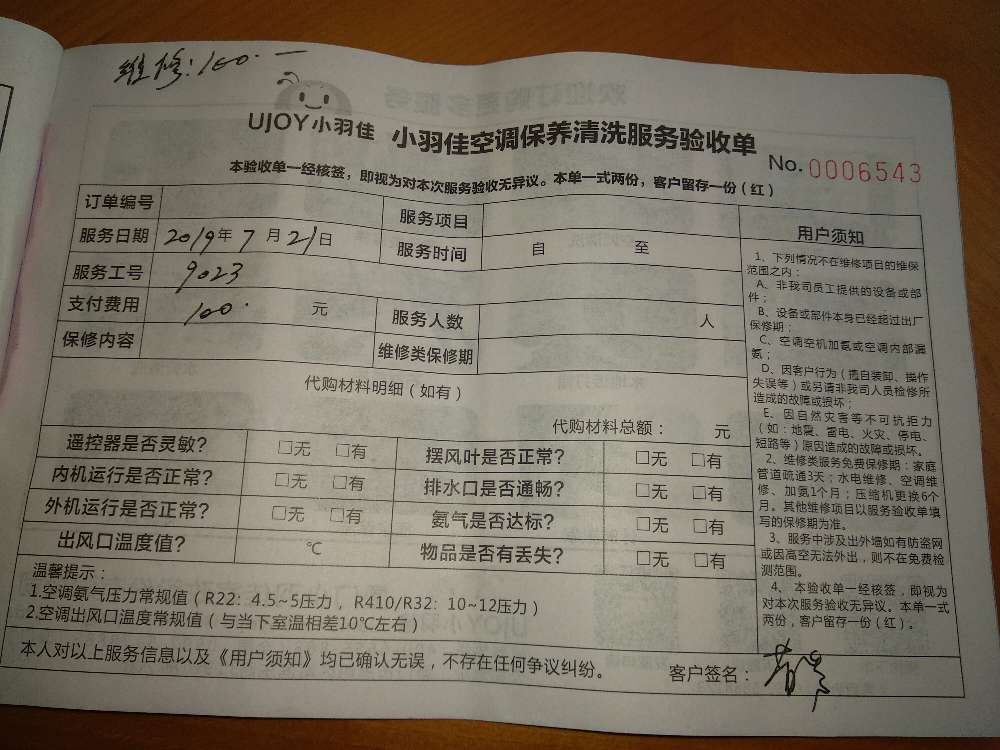 维修:100.一
UJOY小羽佳
小羽佳空调保养清洗服务验收单
No.0006543
本验收单一经核签，即视为对本次服务验收无异议。本单一式两份，客户留存一份（红）
订单编号 服务项目
服务日期 2019年7月21日 服务时间 自 至
服务工号 9023
支付费用 100. 元 服务人数 人
保修内容 维修类保修期
代购材料明细（如有）
代购材料总额： 元
遥控器是否灵敏？ □无 □有 摆风叶是否正常？ □无 □有
内机运行是否正常？ □无 □有 排水口是否通畅？ □无 □有
外机运行是否正常？ □无 □有 氨气是否达标？ □无 □有
出风口温度值？ ℃ 物品是否有丢失？ □无 □有
温馨提示：
1.空调氨气压力常规值（R22：4.5~5压力，R410/R32：10~12压力）
2.空调出风口温度常规值（与当下室温相差10℃左右）
本人对以上服务信息以及《用户须知》均已确认无误，不存在任何争议纠纷。 客户签名：
用户须知
1、下列情况不在维修项目的维保
范围之内：
A、非我司员工提供的设备或部
件；
B、设备或部件本身已经超过出厂
保修期；
C、空调空机加氨或空调内部漏
氨；
D、因客户行为（擅自装卸、操作
失误等）或另请非我司人员检修所
造成的故障或损坏；
E、因自然灾害等不可抗拒力
（如：地震、雷电、火灾、停电、
短路等）原因造成的故障或损坏。
2、维修类服务免费保修期：家庭
管道疏通3天；水电维修、空调维
修、加氨1个月；压缩机更换6个
月。其他维修项目以服务验收单填
写的保修期为准。
3、服务中涉及出外墙如有防盗网
或因高空无法外出，则不在免费检
测范围。
4、本验收单一经核签，即视为
对本次服务验收无异议。本单一式
两份，客户留存一份（红）。